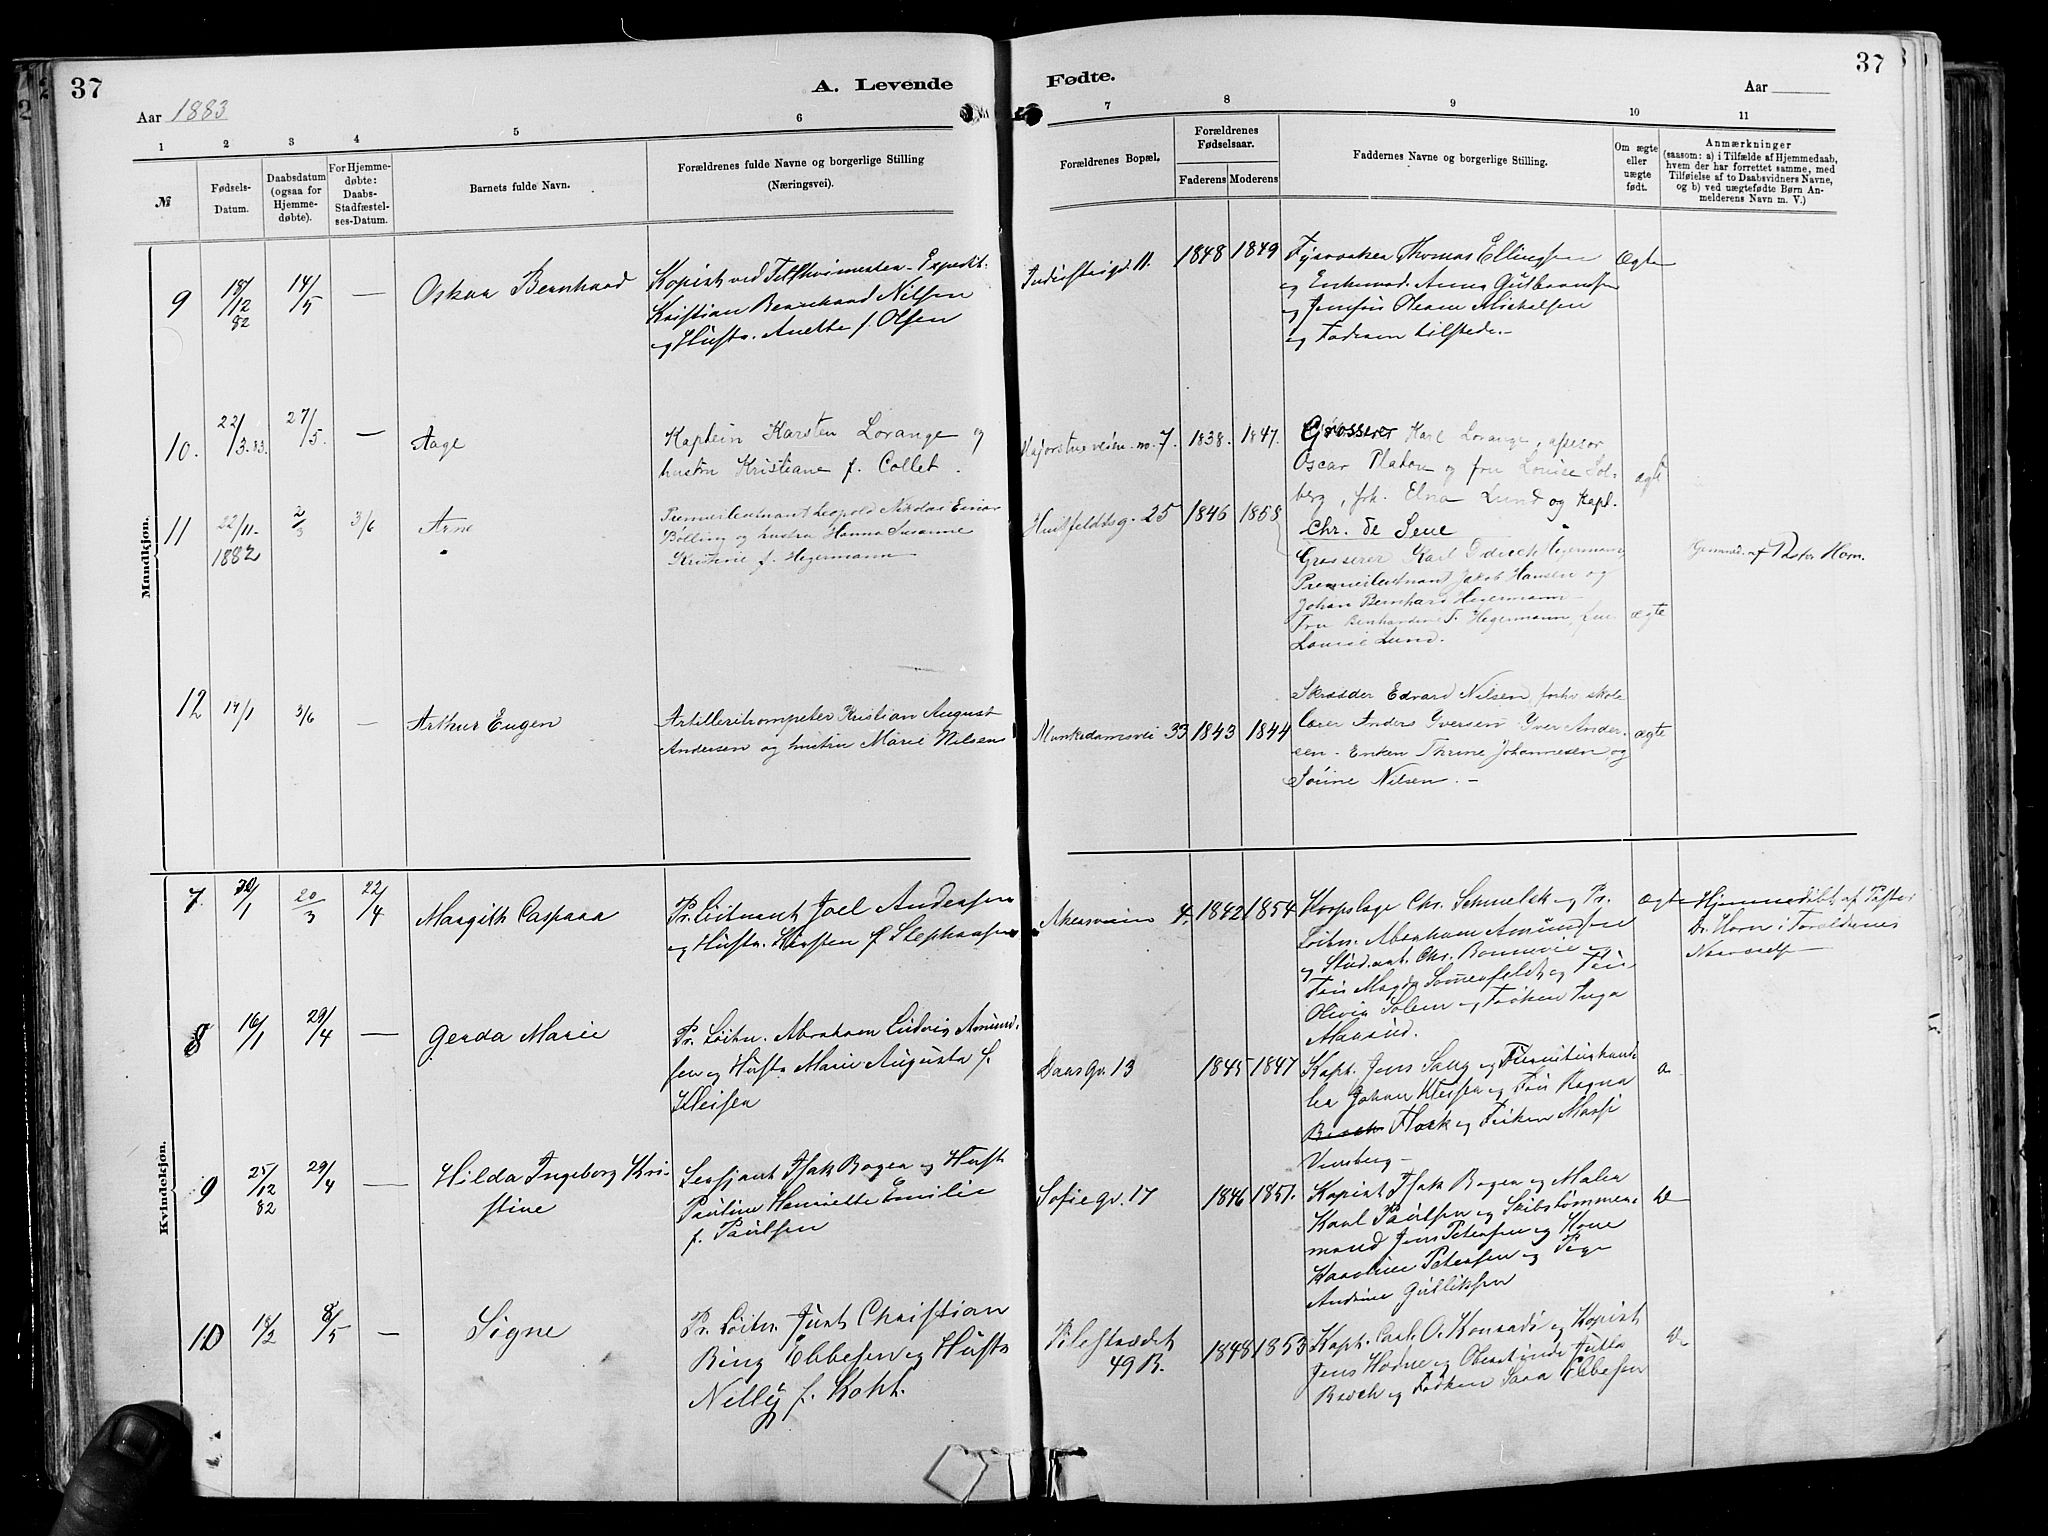 37
A. Levende
Aar 1883
1 2 3 4 5 6
№
Fødsels-
Datum.
Daabsdatum
(ogsaa for
Hjemme-
døbte).
For Hjemme-
døbte:
Daabs-
Stadfæstel-
ses-Datum.
Barnets fulde Navn.
Forældrenes fulde Navne og borgerlige Stilling
(Næringsvei).
Fødte.
37
Aar
7 8 9 10 11
Forældrenes Bopæl.
Forældrenes
Fødselsaar.
Faderens Moderens
Faddernes Navne og borgerlige Stilling.
Om ægte
eller
uægte
født.
Anmærkninger
(saasom: a) i Tilfælde af Hjemmedaab,
hvem der har forrettet samme, med
Tilføielse af to Daabsvidners Navne,
og b) ved uægtefødte Børn An-
melderens Navn m. V.)
Mandkjøn.
9 18/12 82 14/5 — Oskar Bernhard
Kopist ved
Kristian Bernhard Nilsen
og Hustr. Anette f. Olsen
Industrigd. 11. 1848 1849
Fyrvoktер Thomas Ellingsen
og Enkemad. Anne Gulbransen
og Jomfru Olesen Mickelsen
og Faderen tilstede.-
Ægte
10. 22/3.83. 27/5. — Aage
Kaptein Karsten Lorange og
hustru Kristiane f. Collet.
Majorstueveien no. 7. 1838. 1847.
Grosserer Karl Lorange, assesor
Oscar Platou og fru Louise Sol-
berg, frk. Elna Lund og Kapt.
Chr. de Seue
ægte
11 22/11-1882 2/3 3/6 Arne
Premierlieutnant Leopold Nikolai Einar
Bølling og hustru Hanna Susanne
Kristine f. Hegermann
Huitfeldtsg. 25 1846 1858
Grosserer Karl Didrich Hegermann
Premierlieutnant Jakob Hansen og
Johan Bernhard Hegermann
Fru Bernhardine T. Hegermann,
Louise Lund.
ægte
Hjemmed. af Pastor Horn.
12 14/1 3/6 — Arthur Eugen
Artilleritrompeter Kristian August
Andersen og hustru Marie Nilsen
Munkedamsvei 33 1843 1844
Skrædder Edvard Nilsen, forhv skole-
lærer Anders Iversen Iver Ander-
sen - Enken Thrine Johannesen og
Sørine Nilsen. -
ægte
Kvindekjøn.
7. 30/1 20/3 22/4 Margith Caspara
Pr. Løitnant Joel Andersen
og Hustr. Kirsten f. Stephansen
Akersveien 4. 1842 1854
Korpslæge Chr. Schmelck og Pr.
Løitn. Abraham Amundsen
og Stud. art. Chr. Bonnevie og
Frü Magda Sommerfeldt og Frü
Olivia Solem og Frøken Inga
Marüd.
Ægte
Hjemmedøbt af Pastor
Dr. Horn i Forældrenes
Nærværelse
8 16/1 29/4 — Gerda Marie
Pr. Løitn. Abraham Ludvig Amund-
sen og Hustr Marie Augusta f.
Kleisen
Daasgv. 13 1845 1847
Kapt. Jens Sang og
ler Johan Klessen og Frü Ragna
Flock og Frøken
9 25/12 82 29/4 — Hilda Ingeborg Kri-
stine
Sersjant Isak Bogen og Hustr
Pauline Henriette Emilie
f. Paulsen
Sofiegv. 17 1846 1851.
Kopist Isak Bogen og Maler
Karl Paulsen og Skibstømmer-
mand Jens Petersen og Kone
Karoline Petersen og Pige
Andrine Gulliksen
10 18/2 8/5 — Signe
Pr. Løitn. Just Christian
Bing Ebbesen og Hustr
Nelly f. Koht.
Pilestrædet
49 B. 1848 1853
Kapt. Carl O. Konradi og Kopist
Jens Hodne og Oberstinde Jutta
Broch og Frøken Sara Ebbesen